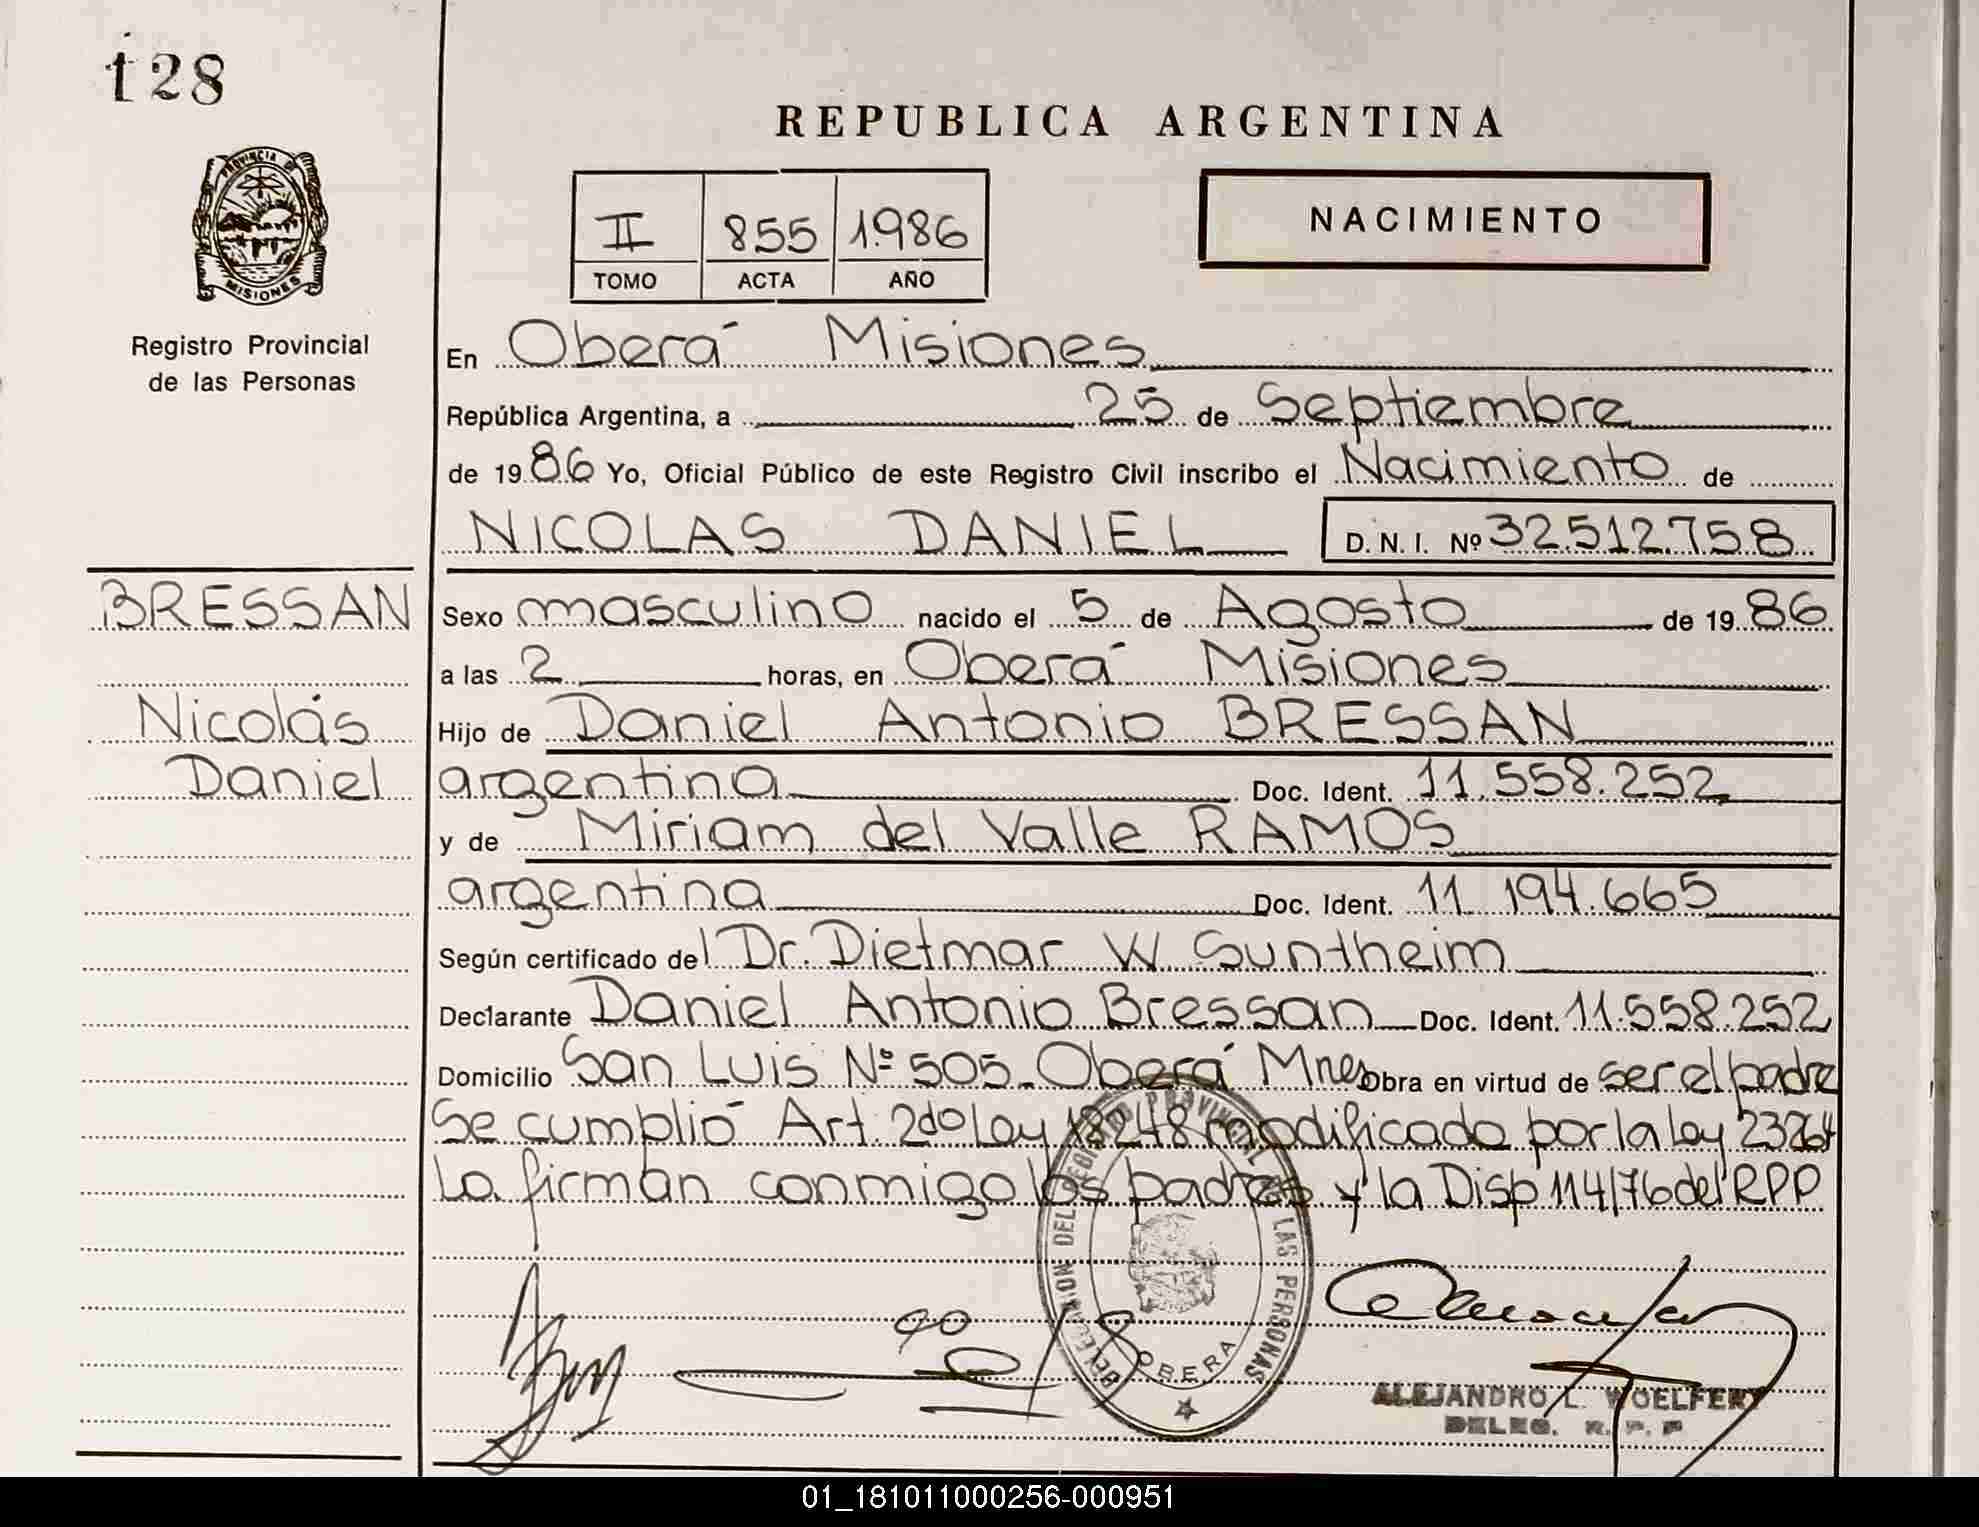 128
REPUBLICA ARGENTINA
PROVINCIA DE
MISIONES
II 855 1.986
TOMO ACTA AÑO
NACIMIENTO
Registro Provincial
de las Personas
En Oberá Misiones
República Argentina, a 25 de Septiembre
de 1986 Yo, Oficial Público de este Registro Civil inscribo el Nacimiento de
NICOLAS DANIEL D.N.I. Nº 32.512.758
BRESSAN
Nicolás
Daniel
Sexo masculino nacido el 5 de Agosto de 1986
a las 2 horas, en Oberá Misiones
Hijo de Daniel Antonio BRESSAN
argentina Doc. Ident. 11.558.252
y de Miriam del Valle RAMOS
argentina Doc. Ident. 11.194.665
Según certificado del Dr. Dietmar W. Suntheim
Declarante Daniel Antonio Bressan Doc. Ident. 11.558.252
Domicilio San Luis Nº 505. Oberá Mnes Obra en virtud de ser el padre
Se cumplió Art. 2do Ley 18248 modificado por la Ley 23264
La firman conmigo los padres y la Disp 114/76 del RPP
DELEGACION DEL REGISTRO PROVINCIAL DE LAS PERSONAS
OBERA
ALEJANDRO L. WOELFERT
DELEG. R. P. P
01_181011000256-000951